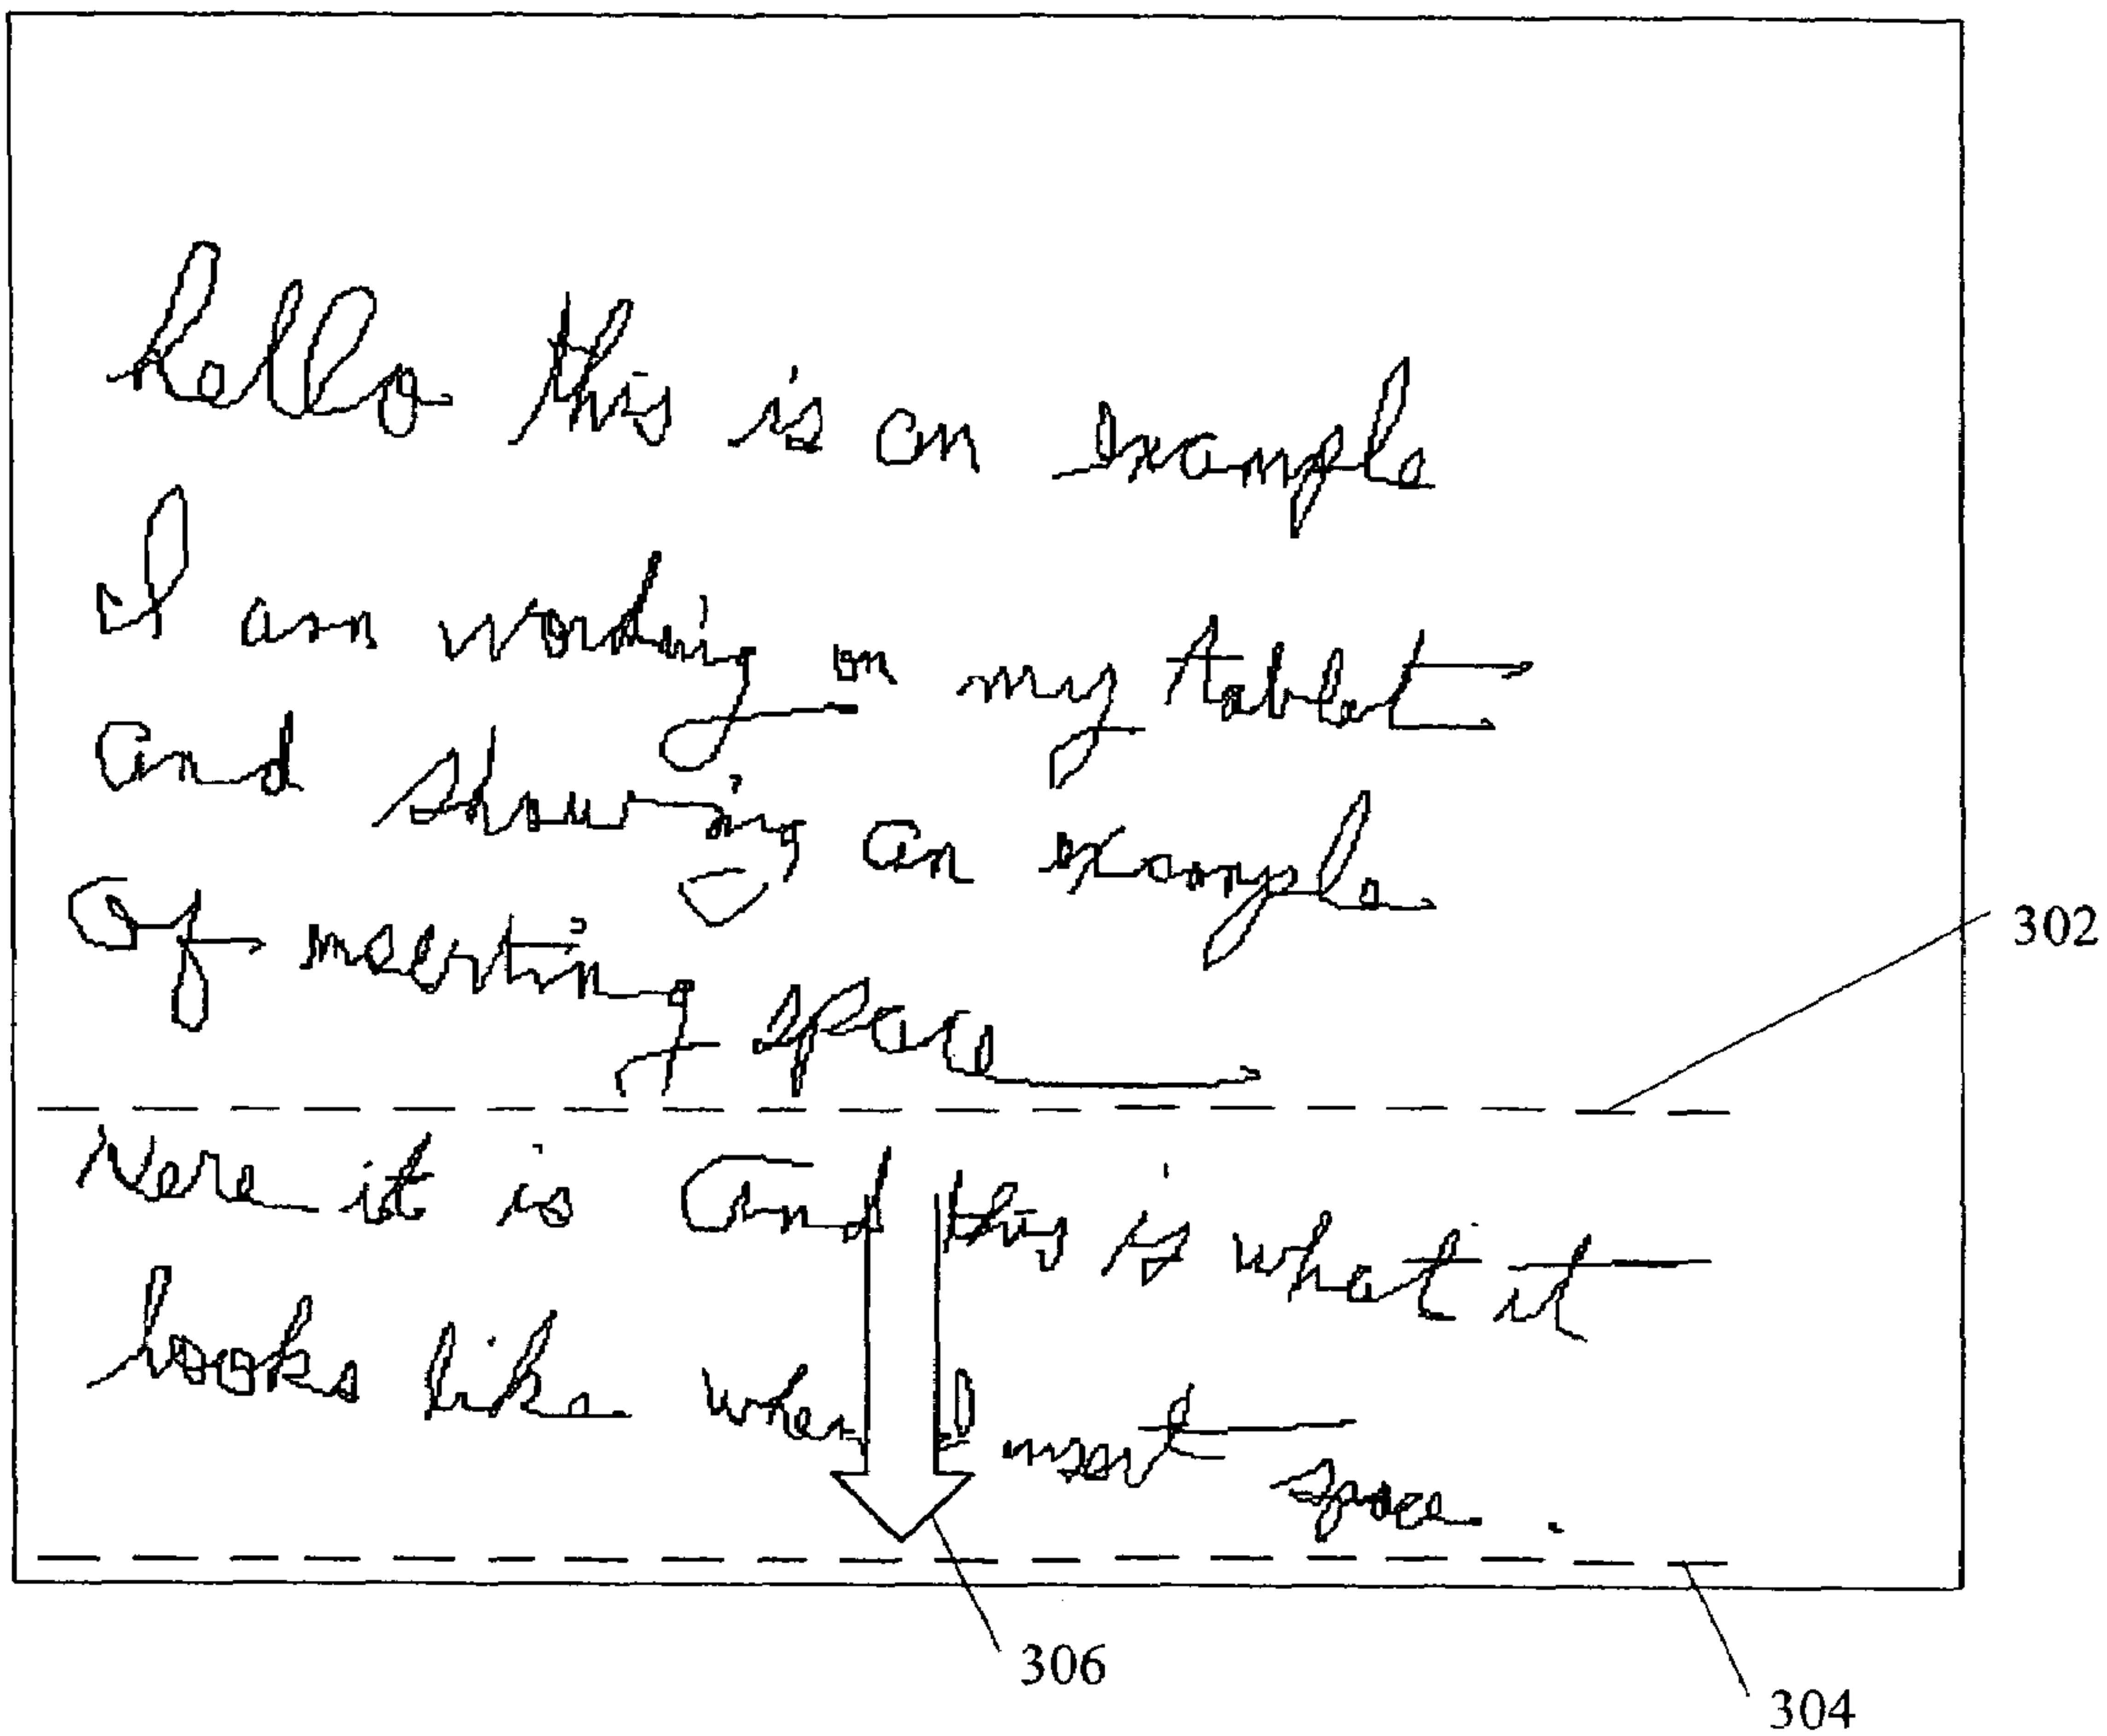 hello this is an example
I am working on my tablet
and showing an example
Of inserting space
302
Here it is and this is what it
looks like when I insert space.
306
304